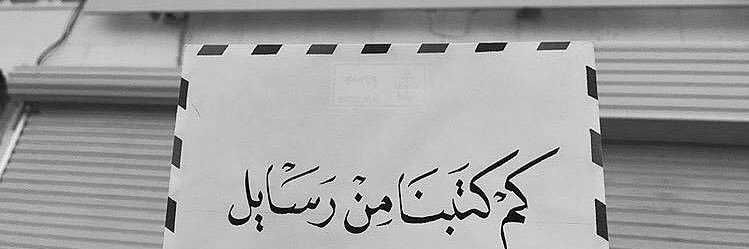 كَمْ كتَبنَا مِنْ رَسَايل